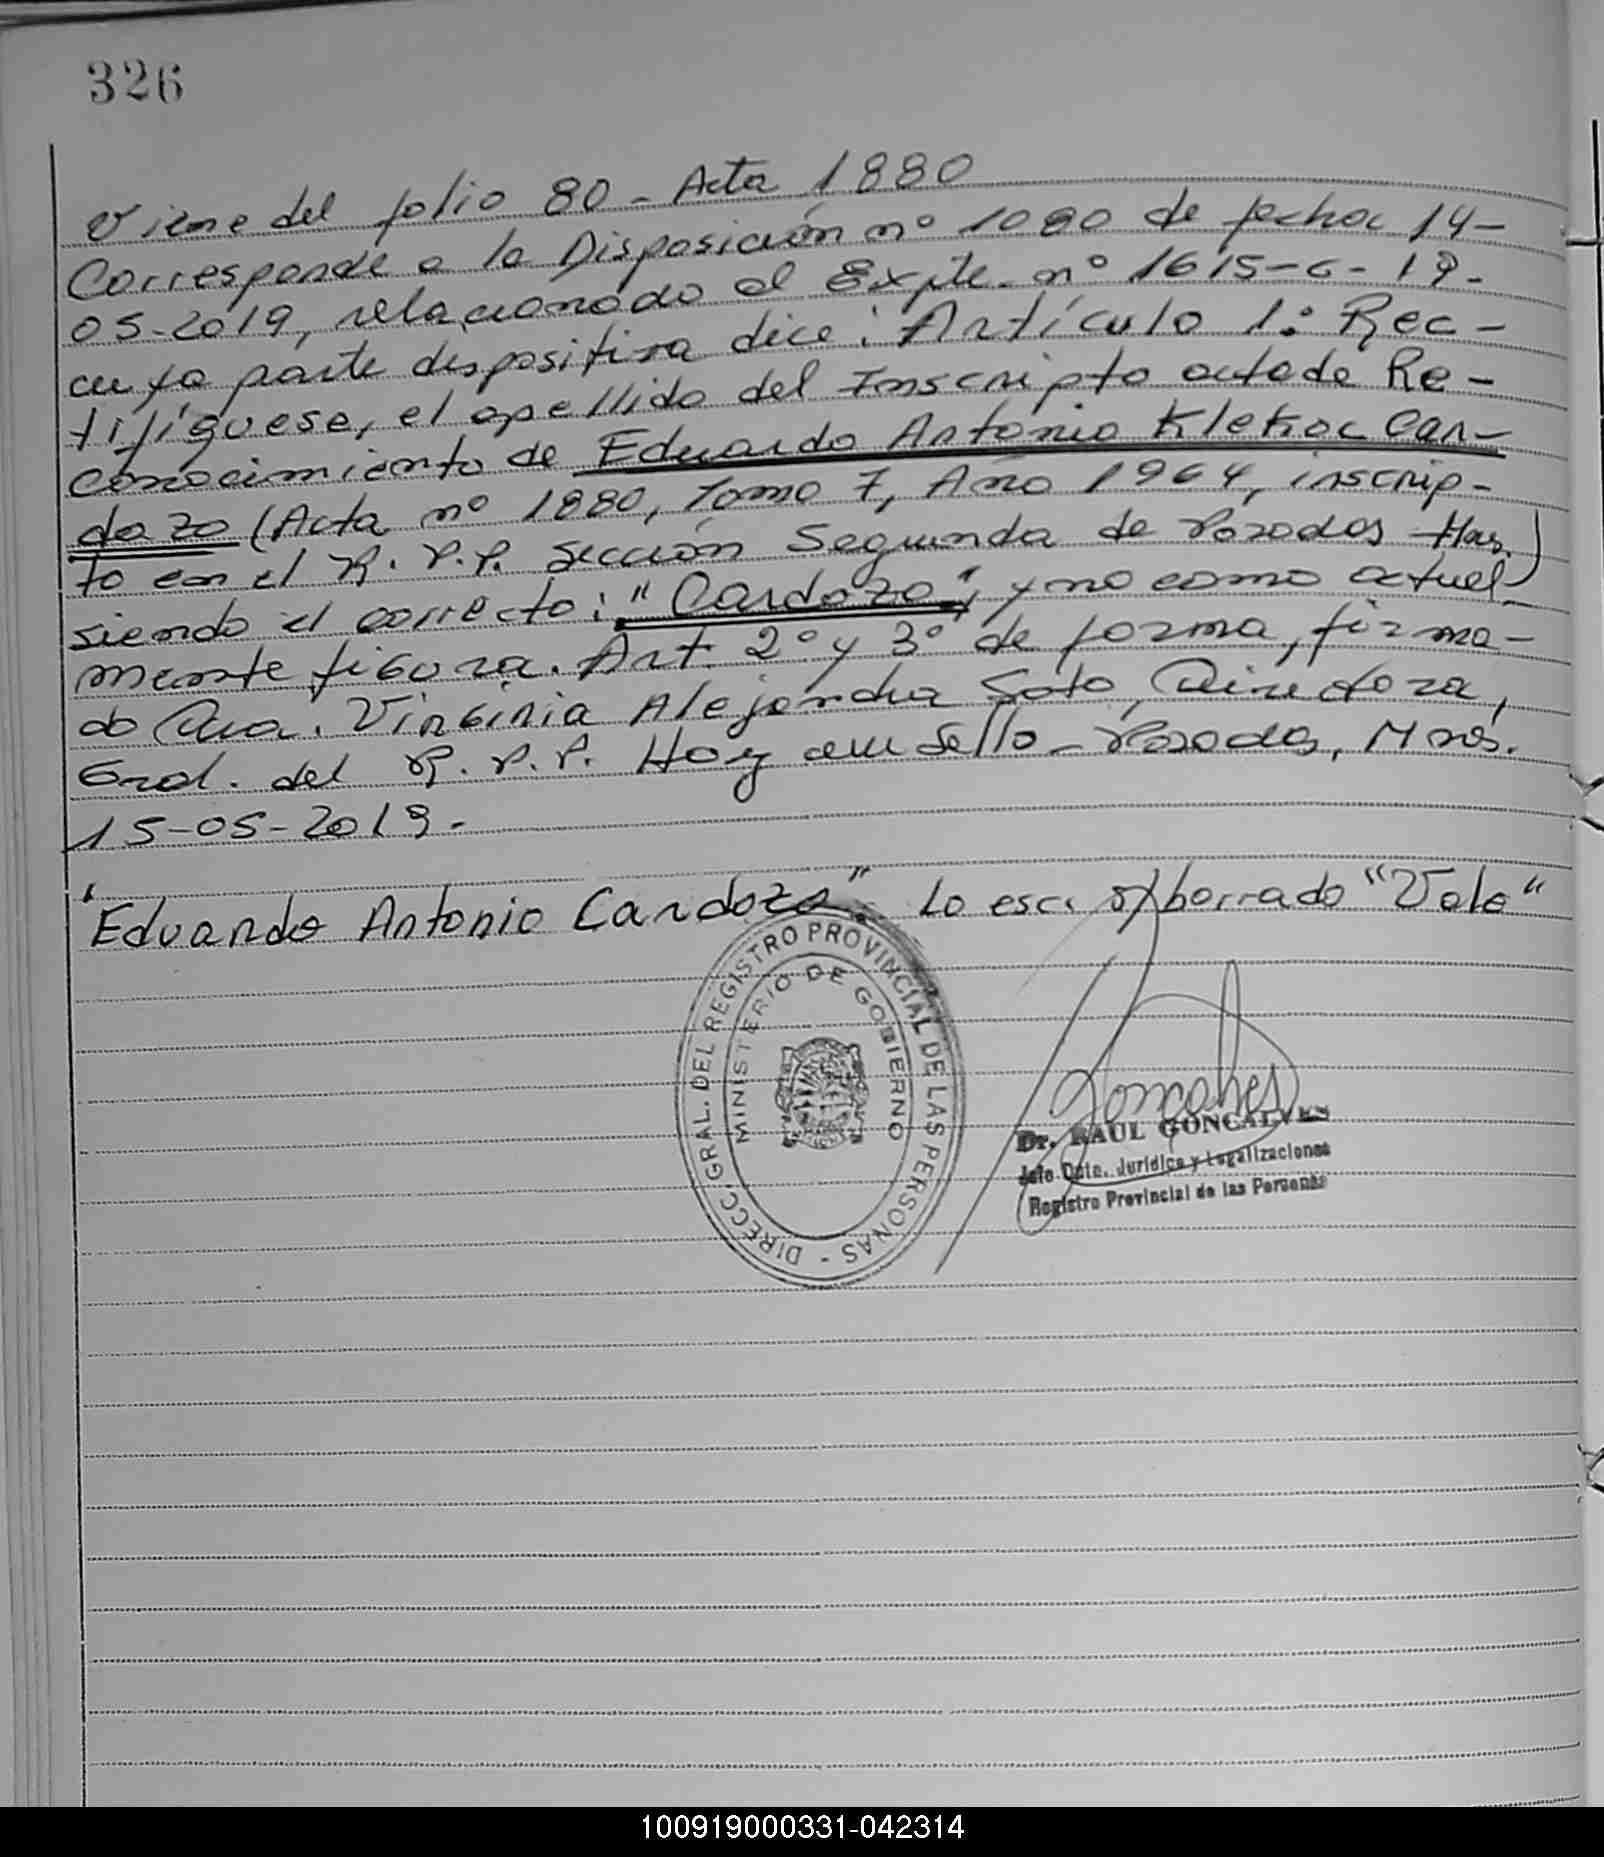 326
Viene del folio 80 - Acta 1880
Corresponde a la Disposición nº 1080 de fecha 14-
05-2019, relacionado al Expte. nº 1615-C-19-
cuya parte dispositiva dice: Artículo 1º Rec-
tifíquese, el apellido del Inscripto acta de Re-
conocimiento de Eduardo Antonio Klekoc Car-
dozo (Acta nº 1880, Tomo 7, Año 1964, inscrip-
to en el R. P. P. Sección Segunda de Posadas Mns.)
siendo el correcto: "Cardozo", y no como actual-
mente figura. Art. 2º y 3º de forma, firma-
do Dra. Virginia Alejandra Soto, Directora,
Gral. del R. P. P. Hay un Sello - Posadas, Mnes.
15-05-2019 -
"Eduardo Antonio Cardozo". Lo esc. s/borrado "Vale"
DIRECC. GRAL. DEL REGISTRO PROVINCIAL DE LAS PERSONAS -
MINISTERIO DE GOBIERNO
Goncalves
Dr. RAUL GONCALVES
Jefe Dpto. Jurídico y Legalizaciones
Registro Provincial de las Personas
100919000331-042314